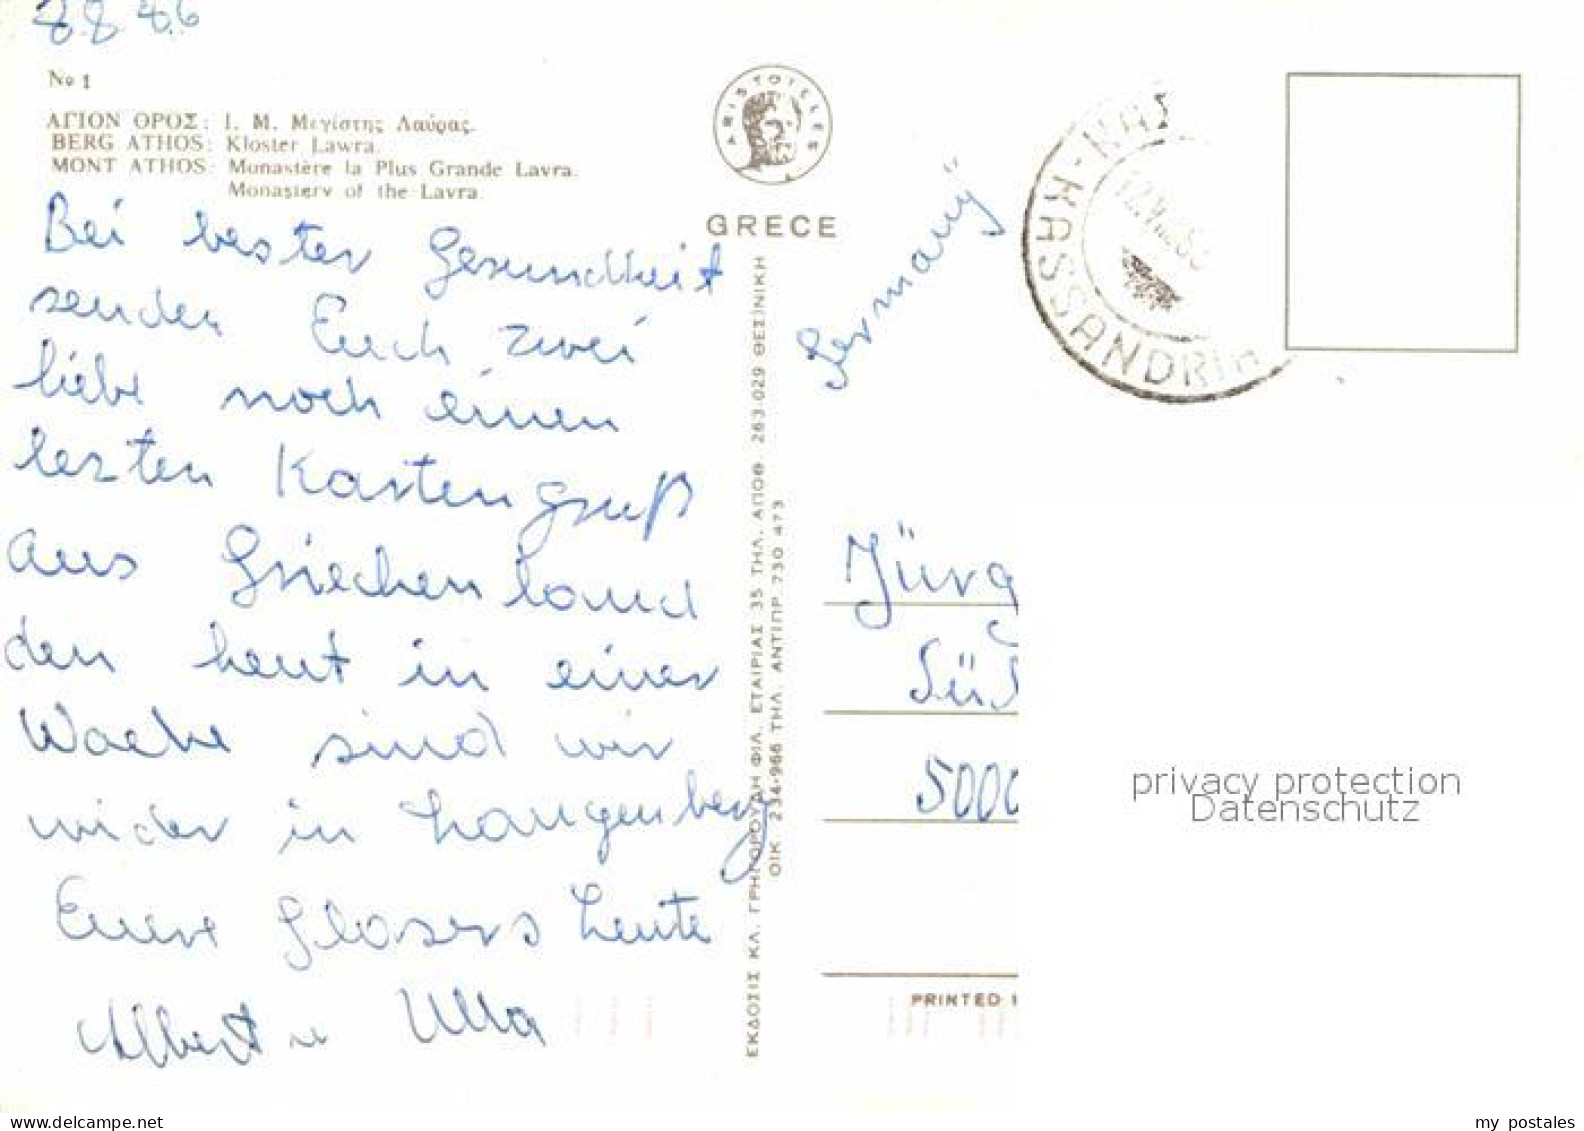 8.8.86
Nº 1
ΑΓΙΟΝ ΟΡΟΣ: Ι. Μ. Μεγίστης Λαύρας.
BERG ATHOS: Kloster Lawra.
MONT ATHOS: Monastère la Plus Grande Lavra.
Monastery of the Lavra.
Bei bester Gesundheit
senden Euch zwei
liebe noch einen
lezten Kartengruß
aus Griechenland
den heut in einer
Woche sind wir
wider in Langenberg
Euere Glasers Leute
Albert u Ulla
ARISTOTELES
GRECE
ΕΚΔΟΣΙΣ ΚΛ. ΓΡΗΓΟΡΟΥΔΗ ΦΙΛ. ΕΤΑΙΡΙΑΣ 35 ΤΗΛ. ΑΠΟΘ. 263-029 ΘΕΣ)ΝΙΚΗ
ΟΙΚ. 234-966 ΤΗΛ. ΑΝΤΙΠΡ. 730 473
Germany
KASSSANDRIA
Jürg
5000
PRINTED I
privacy protection
Datenschutz
www.delcampe.net
my_postales